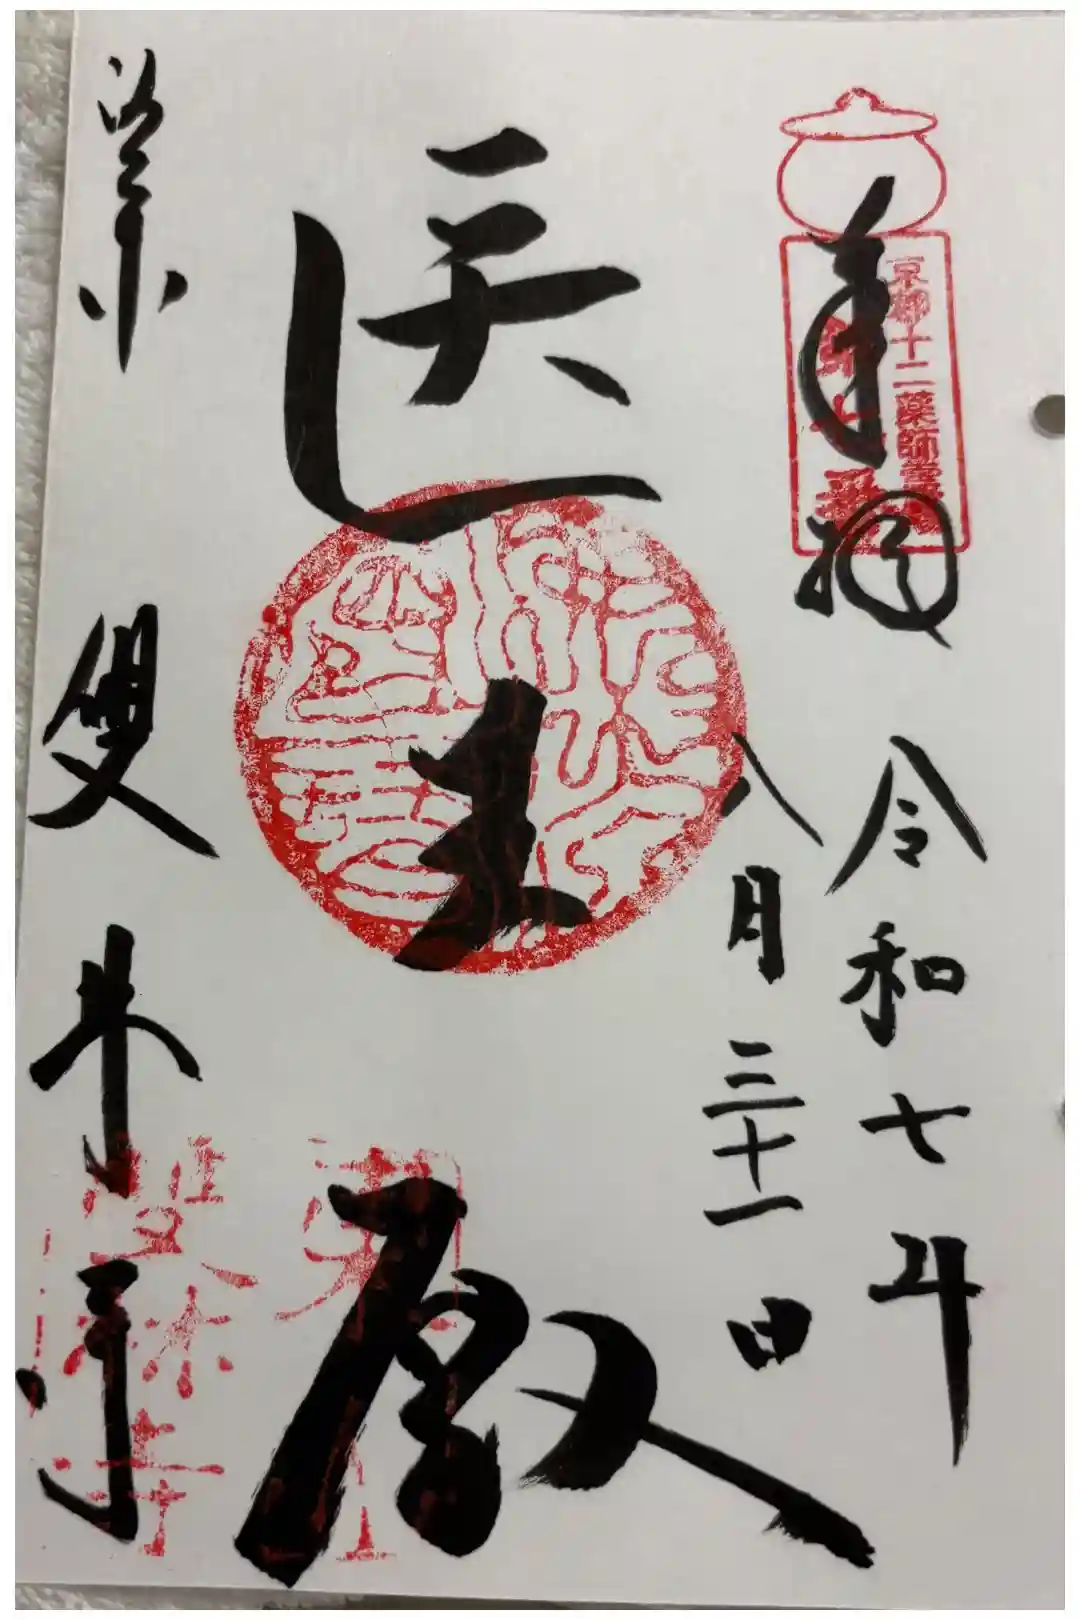 京都十二薬師霊場
第七番
奉拝 令和七年
八月三十一日
医王殿
洛東 雙林寺